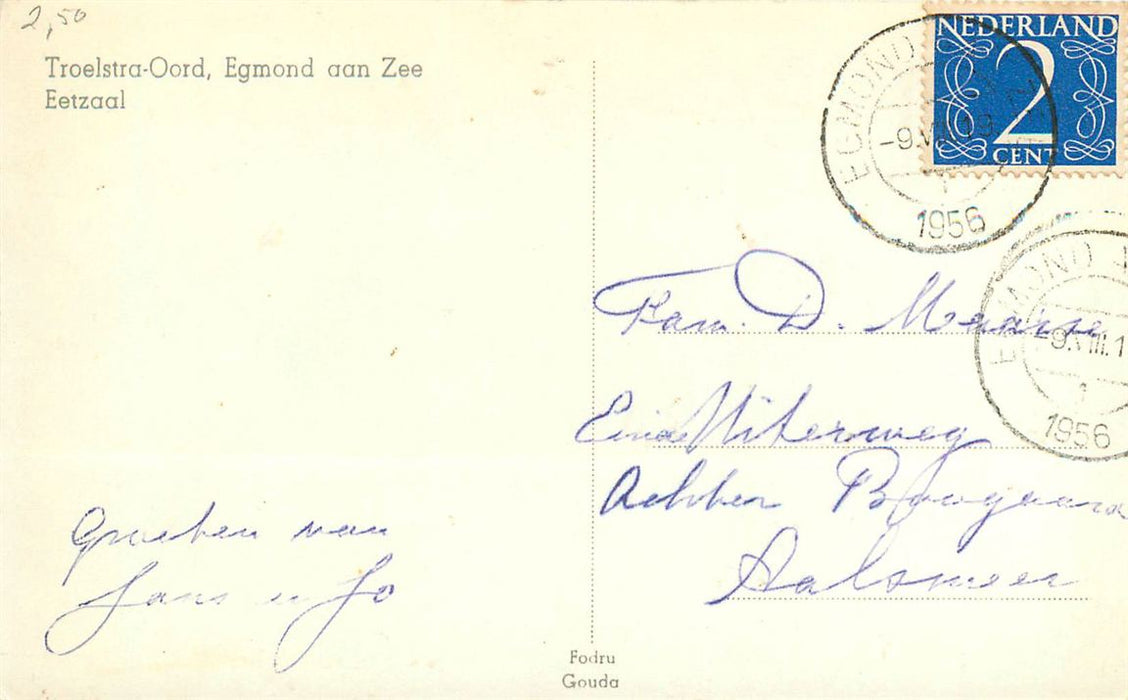 2,50
Troelstra-Oord, Egmond aan Zee
Eetzaal
NEDERLAND
2
CENT
EGMOND
-9.VIII.19
1
1956
EGMOND
-9.VIII.1
1
1956
Fam. D. Maarse
Einde Uiterweg
Achter Boogaard
Aalsmeer
Groeten van
Jans en Jo
Fodru
Gouda